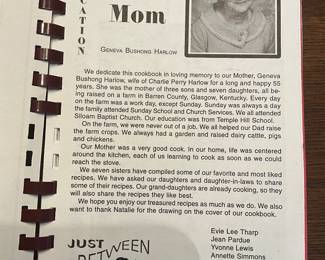 Mom
CATION
GENEVA BUSHONG HARLOW
We dedicate this cookbook in loving memory to our Mother, Geneva
Bushong Harlow, wife of Charlie Perry Harlow for a long and happy 55
years. She was the mother of three sons and seven daughters, all be-
ing raised on a farm in Barren County, Glasgow, Kentucky. Every day
on the farm was a work day, except Sunday. Sunday was always a day
the family attended Sunday School and Church Services. We all attended
Siloam Baptist Church. Our education was from Temple Hill School.
On the farm, we were never out of a job. We all helped our Dad raise
the farm crops. We always had a garden and raised dairy cattle, pigs
and chickens.
Our Mother was a very good cook. In our home, life was centered
around the kitchen, each of us learning to cook as soon as we could
reach the stove.
We seven sisters have compiled some of our favorite and most liked
recipes. We have asked our daughters and daughter-in-laws to share
some of their recipes. Our grand-daughters are already cooking, so they
will also share the recipes they like best.
We hope you enjoy our treasured recipes as much as we do. We also
want to thank Natalie for the drawing on the cover of our cookbook.
Evie Lee Tharp
Jean Pardue
Yvonne Lewis
Annette Simmons
JUST
BETWEEN